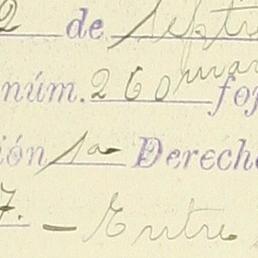 2 de Septie
núm. 260 fo
ión 1a Derech
7. - Entre